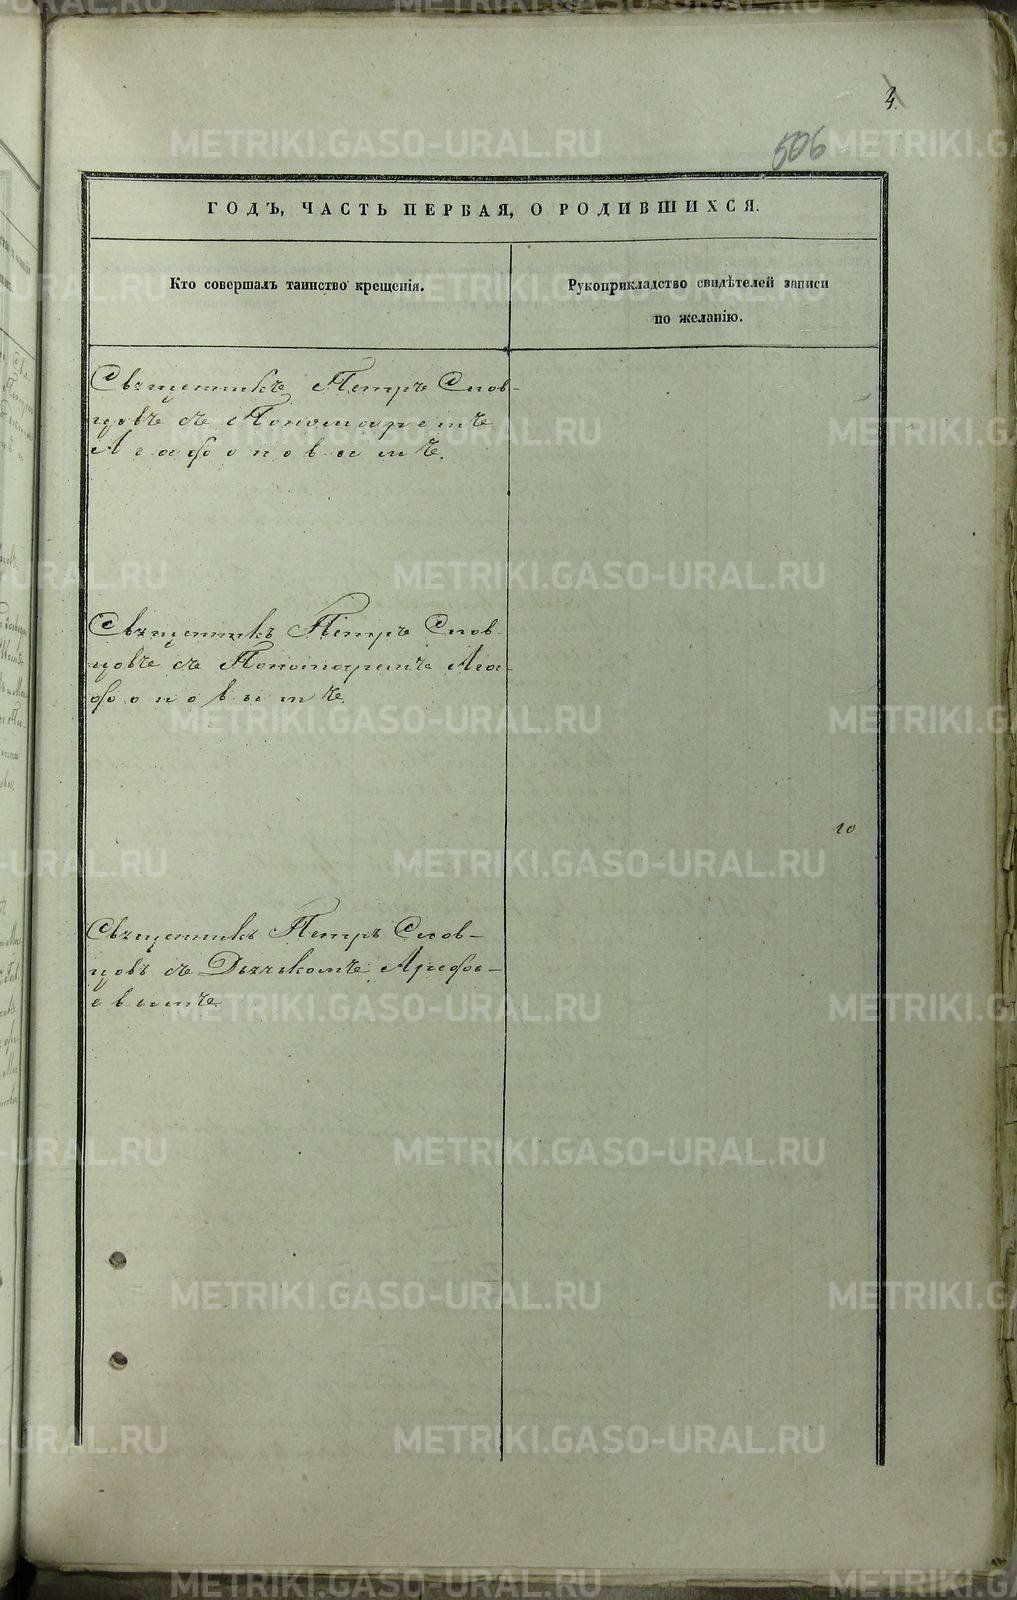 4.
506
ГОДЪ, ЧАСТЬ ПЕРВАЯ, О РОДИВШИХСЯ.
Кто совершалъ таинство крещенія.
Рукоприкладство свидѣтелей записи
по желанію.
Священникъ Петръ Слов-
цовъ съ Пономаремъ
Агафоновымъ.
Священникъ Петръ Слов-
цовъ съ Пономаремъ Ага-
фоновымъ.
10
Священникъ Петръ Слов-
цовъ съ Дьячкомъ Арефь-
евымъ.
METRIKI.GASO-URAL.RU